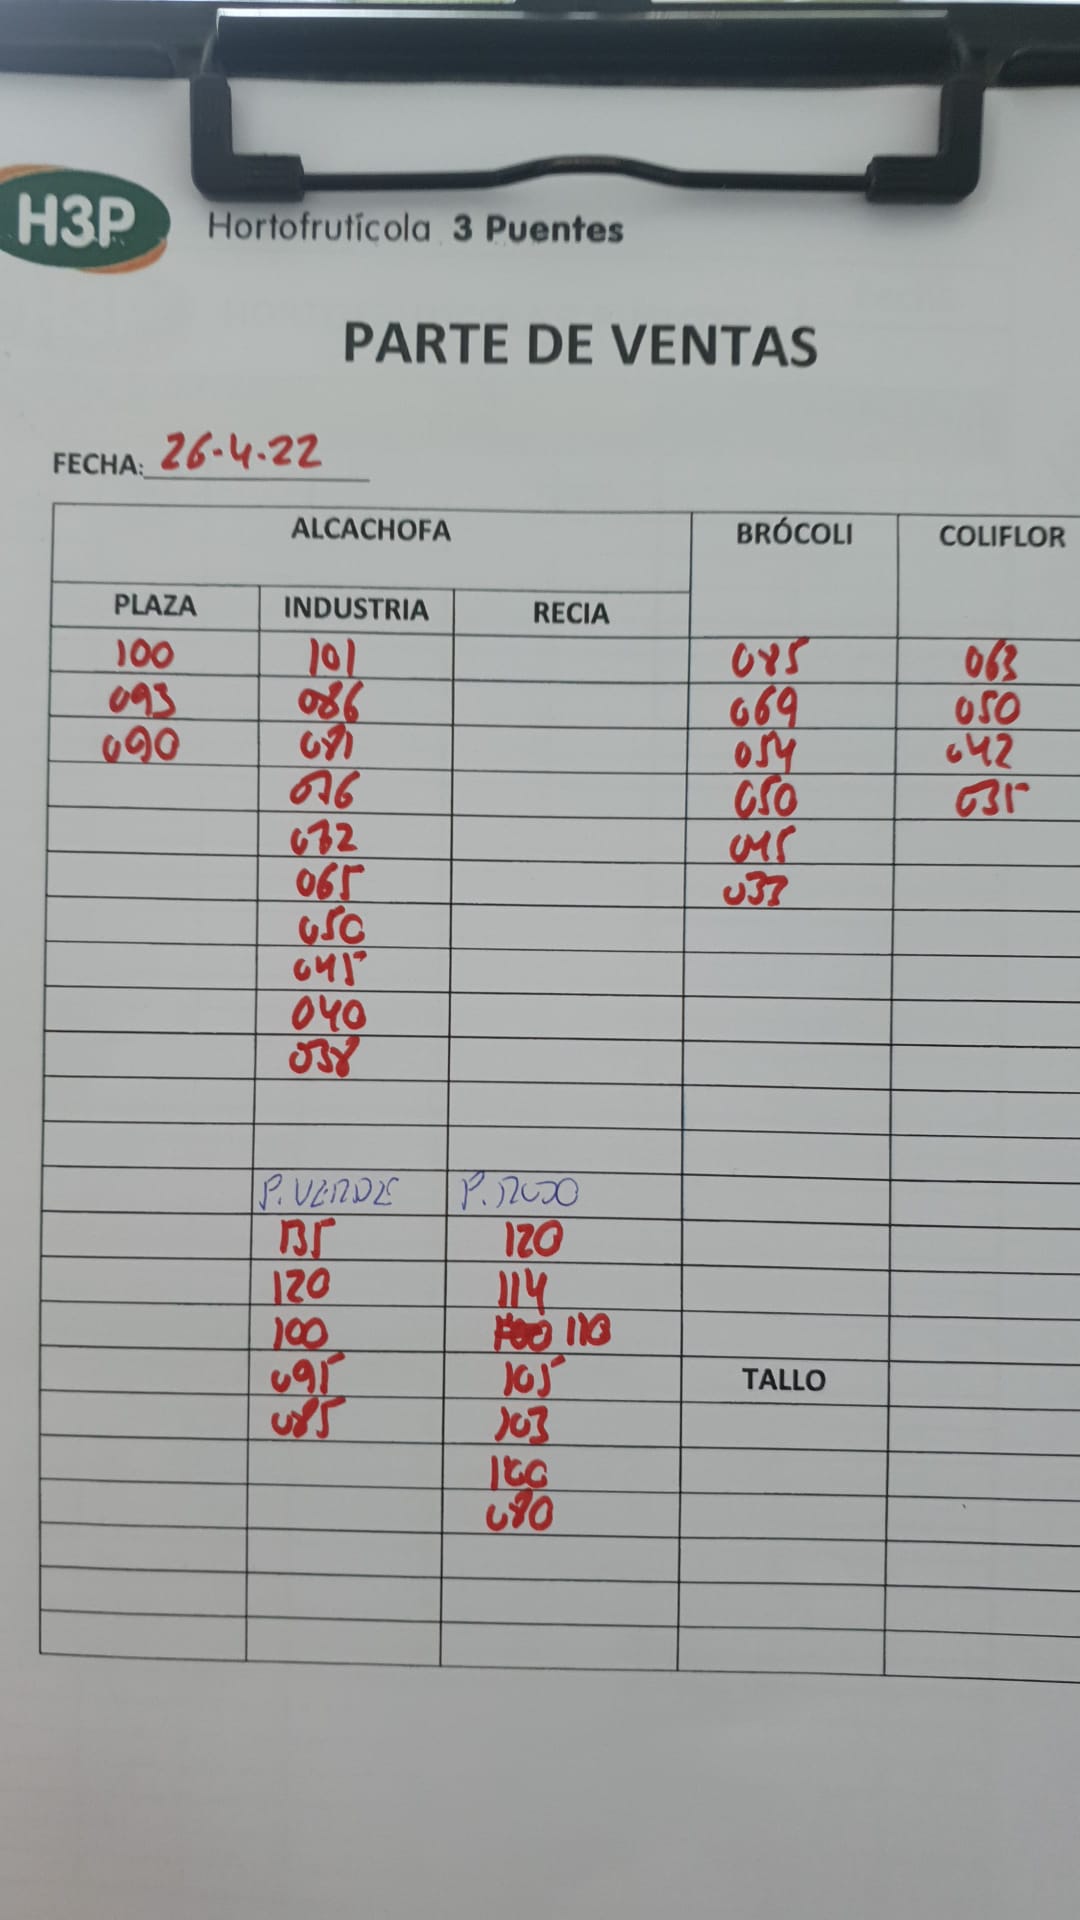 H3P Hortofrutícola 3 Puentes
PARTE DE VENTAS
FECHA: 26-4-22
ALCACHOFA BRÓCOLI COLIFLOR
PLAZA INDUSTRIA RECIA
100 101 085 063
093 086 069 050
090 081 054 042
076 050 035
072 045
065 037
050
045
040
038
P. VERDE P. ROJO
135 120
120 114
100 110
095 105 TALLO
085 103
100
080